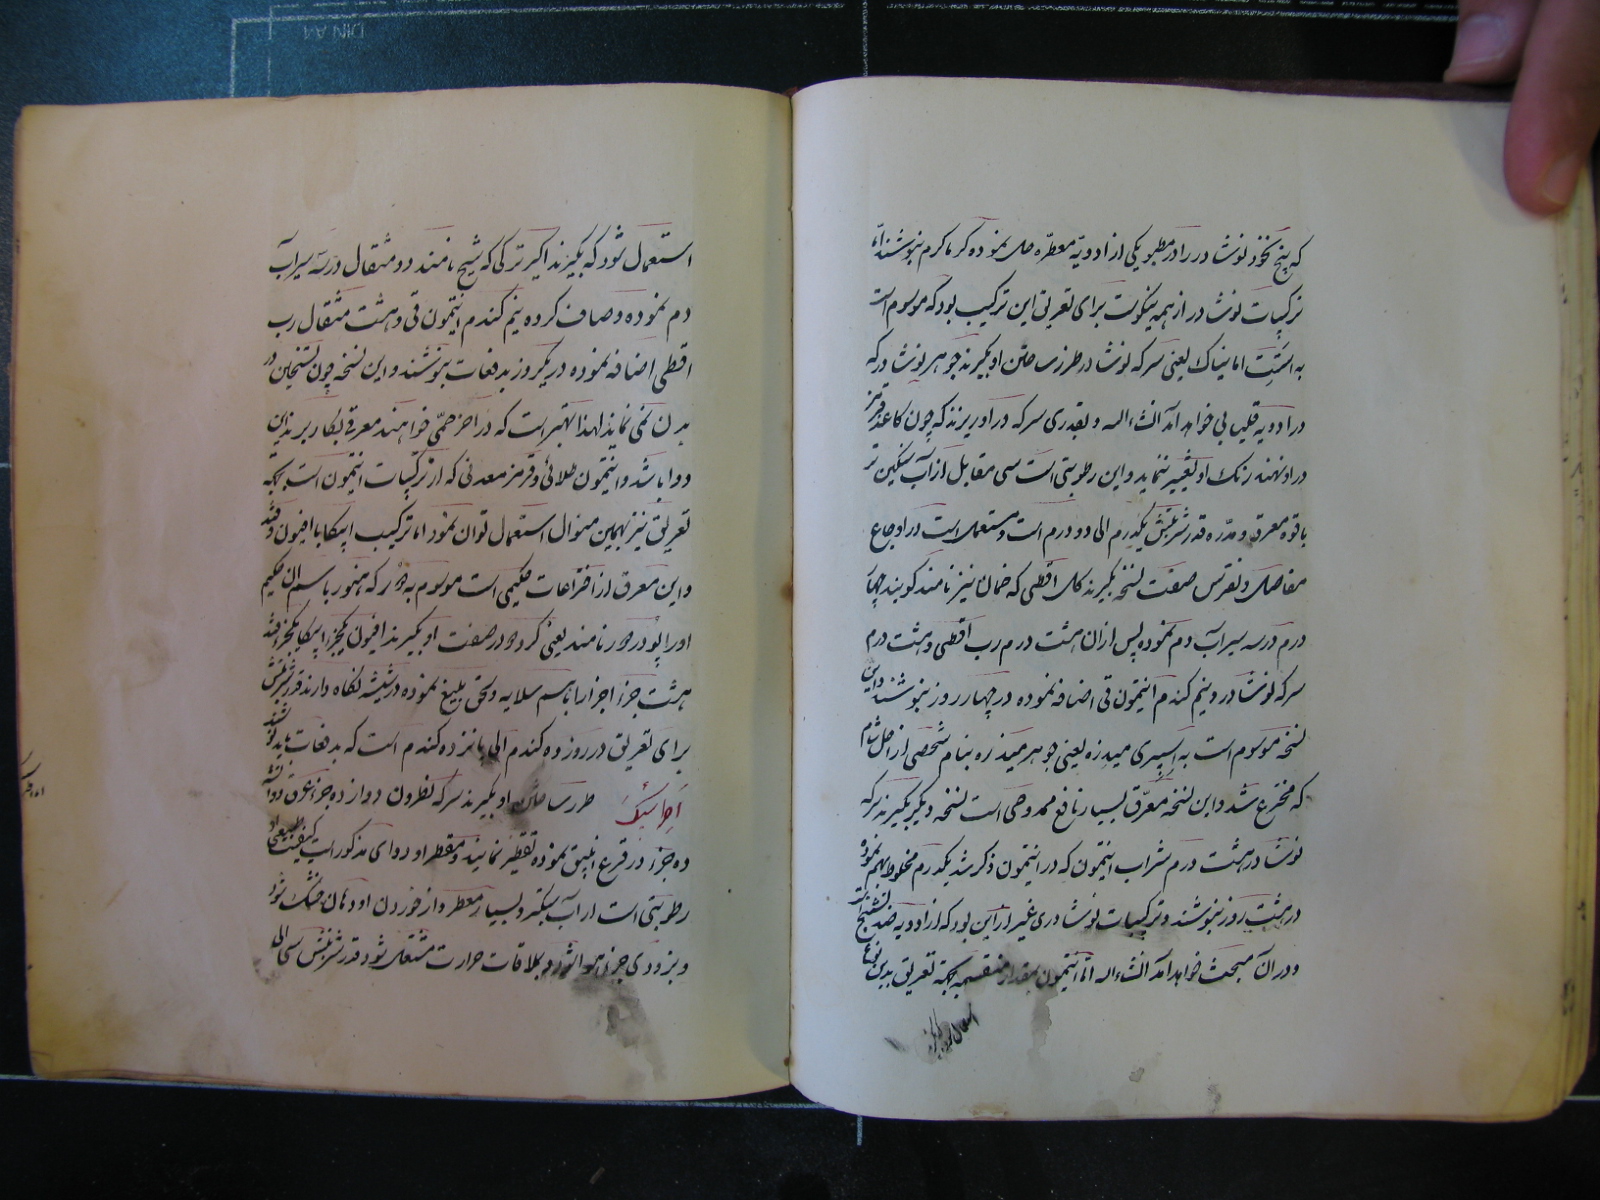 که پنج نخود نوشادر را در مطبوخ یکی از ادویهٔ معطره حل نموده گرماگرم بنوشند اما
ترکیبات نوشادر از همه نیکوست برای تعریق این ترکیب بود که موسوم است
به یعنی سرکه نوشادر طرز ساختن او بگیرند جوهر نوشادر که
در ادویه قلیایی خواهد آمد انشاءالله و بقدری سرکه در او ریزند که چون کاغذ قرمز
در او نهند رنگ او تغییر ننماید و این رطوبتی است سی مقابل از آب سنگین تر
با قوه معرقه و مدره قدر شربتش یکدرم الی دو درم است و مستعمل است در اوجاع
مفاصل و نقرس صفت نسخه بگیرند گل اقطی که خمان نیز نامند گویند چهار
درم در سه سیر آب دم نموده پس از آن هشت درم رب اقطی و هشت درم
سرکه نوشادر و نیم گندم انتیمون قی اضافه نموده در چهار روز بنوشند و این
نسخه موسوم است به یعنی جوهر میندره بنام شخصی از اهل شام
که مخترع شد و این نسخه معرق بسیار نافع ممدوحی است نسخه دیگر بگیرند سرکه
نوشادر هشت درم شراب انتیمون که در انتیمون ذکر شد یکدرم مخلوط بهم نموده
در هشت روز بنوشند و ترکیبات نوشادری غیر از این بود که از ادویه ضد تشنج است
و در آن مبحث خواهد آمد انشاءالله اما انتیمون بمقدار منقسمه بجهة تعریق بدین نوع
استعمال
استعمال شود که بگیرند اکیر ترکی که شیح نامند دو مثقال در سه سیر آب
دم نموده و صاف کرده نیم گندم انتیمون قی و هشت مثقال رب
اقطی اضافه نموده در یکروز بدفعات بنوشند و این نسخه چون تسخین در
بدن نمی نماید لهذا بهتر است که در آخر حمی خواهند معرقی بکار برند این
دوا باشد و انتیمون طلائی و قرمز معدنی که از ترکیبات انتیمون است بجهة
تعریق نیز بهمین منوال استعمال توان نمود اما ترکیب اپیکا با افیون و قند
و این معرق از اختراعات حکیمی است موسوم به دور که هنوز باسم آن حکیم
او را پودر دور نامند یعنی گرد دور صفت او بگیرند افیون یکجزء اپیکا یکجزء قند
هشت جزء اجزا را باسم سلایه و سحق بلیغ نموده در شیشه نگاه دارند قدر شربتش
برای تعریق در روز ده گندم الی پانزده گندم است که بدفعات باید نوشند
طرز ساختن او بگیرند سرکه نطرون دوازده جزء عرق دوآتشه
ده جزء در قرع انبیق نموده تقطیر نمایند و مقطر او دوای مذکور است کیفیت طبیعی او
رطوبتی است از آب سبکتر و بسیار معطر و از خوردن او دهان خنک شود
و بزودی جزء هوا شود و بملاقات حرارت مشتعل شود قدر شربتش سی الی